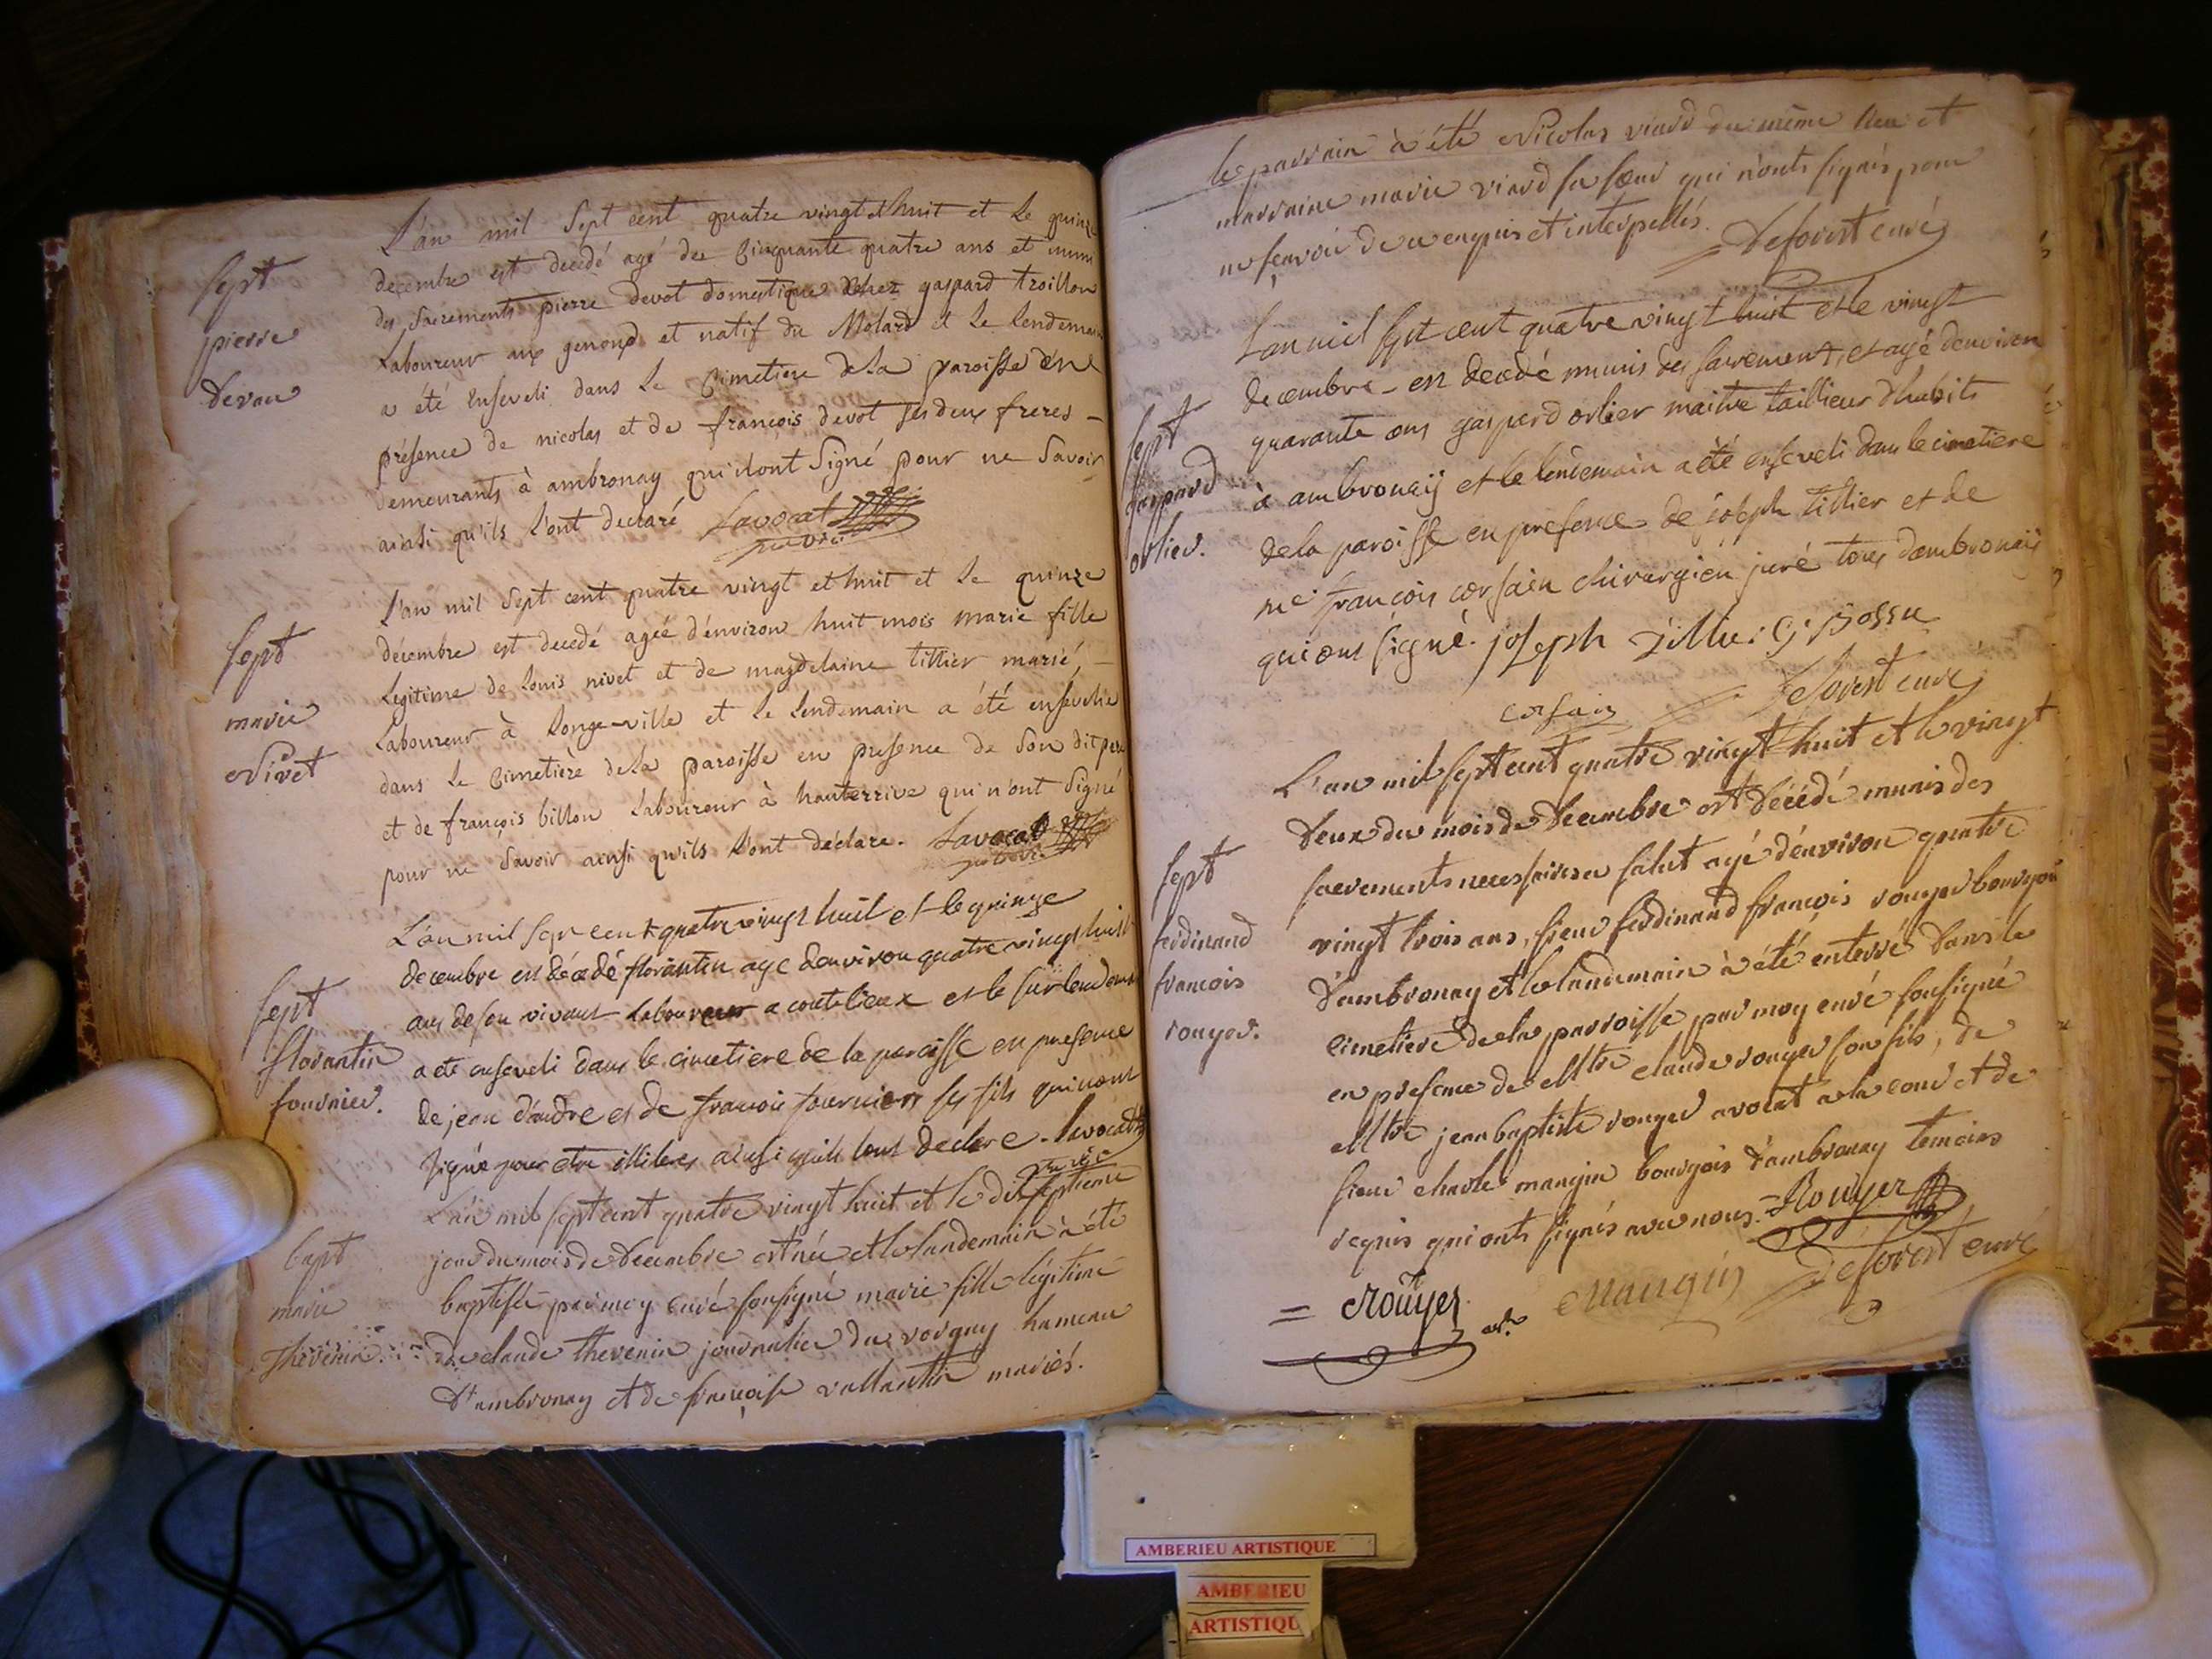 L'an mil Sept cent quatre vingt et huit et le quinze
Sept
decembre est decédé agé de Cinquante quatre ans et muni
des Sacrements pierre devot domestique chez gaspard troillon
pierre
Laboureur aux genoud et natif du Molard et le lendemain
devau
a été Enseveli dans Le Cimetiere de La paroisse en
présence de nicolas et de françois devot ses deux freres -
demeurants à ambronay qui n'ont Signé pour ne Savoir
ainsi qu'ils l'ont declaré Lavocat
vicaire
L'an mil Sept cent quatre vingt et huit et Le quinze
Sept
décembre est decedé ageé d'environ huit mois marie fille
Legitime de Louis nivet et de magdelaine tillier mariés, -
marie
Laboureur à Longe-ville et Le Lendemain a été ensevelie
Nivet
dans Le Cimetière de La paroisse en presence de Son dit pere
et de françois billon Laboureur à hauterrive qui n'ont Signé
pour ne Savoir ainsi qu'ils L'ont déclare. Lavocat
vicaire
L'an mil Sept cent quatre vingt huit et le quinze
Sept
decembre est décedé florantin age denviron quatre vingt huit
ans de son vivant Laboureur a coutelieux et le surlendemain
florantin
a ete enseveli dans le cimetiere de la paroisse en presence
fournier.
de jean d'andre et de francois fournier ses fils qui n'ont
signé pour etre illiteres ainsi quils lont declare - lavocat
vicaire
L'an mil sept cent quatre vingt huit et le dix septieme
bapt
jour du mois de decembre est née et le landemain à été
marie
baptisée par moy curé sousigné marie fille légitime
Thevenin
de claude thevenin journalier du vorgey hameau
d'ambronay et de françoise vallantin mariés.
le parrain à été Nicolas viard du même lieu et
marraine marie viard sa sœur qui n'onts signés pour
ne sçavoir de ce enquis et interpellés. Deforest curé
L'an mil Sept cent quatre vingt huit et le vingt
decembre - est decedé munis des sacrements, et agé denviron
Sept
quarante ans gaspard orlier maitre taillieur d'habits
gaspard
à ambronaÿ et le lendemain a été enseveli dans le cimetiere
orlier.
de la paroisse en presence de joseph tillier et de
me françois corsain chirurgién juré tous dambronaÿ
qui ont signé. joseph Tillie: G: Bossu
corsain Deforest curé
L'an mil sept cent quatre vingt huit et le vingt
deux du mois de decembre est décédé munis des
Sept
sacrements necessaires a salut agé d'environ quatre
ferdinand
vingt trois ans, sieur ferdinand françois rouyer bourgois
françois
d'ambronay et le landemain à été enterré dans le
rouyer.
cimetiere de la parroisse par moy curé sousigné
en presence de Mtre claude rouyer son fils, de
Mtre jean baptiste rouyer avocat a la cour et de
sieur charle mangin bourgois d'ambronay temoins
requis qui onts signés avec nous. Rouyer
= Rouyer Mangin Deforest curé
AMBERIEU ARTISTIQUE
AMBERIEU
ARTISTIQU